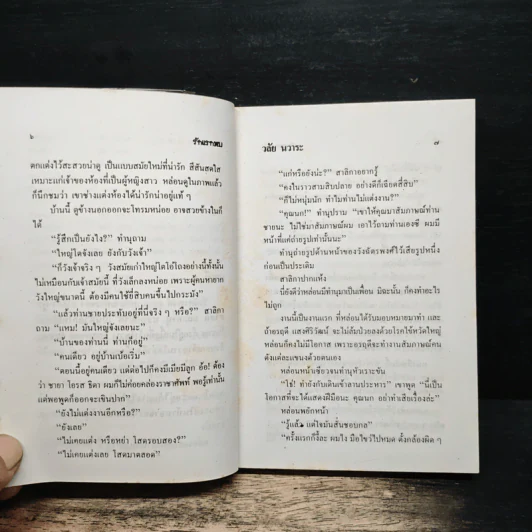 ๖
รักแรกพบ
ตกแต่งไว้สะสวยน่าดู เป็นแบบสมัยใหม่ที่น่ารัก สีสันสดใส
เหมาะแก่เจ้าของห้องที่เป็นผู้หญิงสาว หล่อนดูในภาพแล้ว
ก็นึกชมว่า เขาช่างแต่งห้องได้น่ารักน่าอยู่แท้ ๆ
บ้านนี้ ดูข้างนอกออกจะโทรมหน่อย อาจสวยข้างในก็
ได้
“รู้สึกเป็นยังไง?” ทำนุถาม
“ใหญ่โตจังเลย ยังกับวังเจ้า”
“ก็วังเจ้าจริง ๆ วังสมัยเก่าใหญ่โตโอ่โถงอย่างนี้ทั้งนั้น
ไม่เหมือนกับเจ้าสมัยนี้ ที่วังเล็กลงหน่อย เพราะผู้คนหายาก
วังใหญ่ขนาดนี้ ต้องมีคนใช้ยี่สิบคนขึ้นไปกระมัง”
“แล้วท่านชายประทับอยู่ที่นี่จริง ๆ หรือ?” สาลิกา
ถาม “แหม! มันใหญ่จังเลยนะ”
“บ้านของท่านนี้ ท่านก็อยู่”
“คนเดียว อยู่บ้านเบ้อเริ่ม”
“ตอนนี้อยู่คนเดียว แต่ต่อไปก็คงมีเมียมีลูก อ้อ! ต้อง
ว่า ชายา โอรส ธิดา ผมก็ไม่ค่อยคล่องราชาศัพท์ พอรู้เท่านั้น
แต่พอพูดก็ออกจะเขินปาก”
“ยังไม่แต่งงานอีกหรือ?”
“ยังเลย”
“ไม่เคยแต่ง หรือหย่า โสดรอบสอง?”
“ไม่เคยแต่งเลย โสดมาตลอด”
วลัย นวาระ
๗
“แก่หรือยังน่ะ?” สาลิกาอยากรู้
“คงในราวสามสิบปลาย อย่างดีก็เฉียดสี่สิบ”
“ก็ไม่หนุ่มนัก ทำไมท่านไม่แต่งงาน?”
“คุณนก!” ทำนุปราม “เขาให้คุณมาสัมภาษณ์ท่าน
ชายนะ ไม่ใช่มาสัมภาษณ์ผม เอาไว้ถามท่านเองซี ผมมี
หน้าที่แค่ถ่ายรูปเท่านั้นนะ”
ทำนุถ่ายรูปด้านหน้าของวังฉัตรพงศ์ไว้เสียรูปหนึ่ง
ก่อนเป็นประเดิม
สาลิกาปากแห้ง
นี่ยังดีว่าหล่อนมีทำนุมาเป็นเพื่อน มิฉะนั้น ก็คงทำอะไร
ไม่ถูก
งานนี้เป็นงานแรก ที่หล่อนได้รับมอบหมายมาทำ และ
ถ้าอรฤดี แสงศิริวัฒน์ จะไม่ล้มป่วยลงด้วยโรคไข้หวัดใหญ่
หล่อนก็คงไม่มีโอกาส เพราะอรฤดีจะทำงานสัมภาษณ์คน
ดังแต่ละแขนงด้วยตนเอง
หล่อนหน้าเซียวจนทำนุหัวเราะขัน
“โธ่! ทำยังกับเดินเข้าลานประหาร” เขาพูด “นี่เป็น
โอกาสที่จะได้แสดงฝีมือนะ คุณนก อย่าทำเสียเรื่องล่ะ”
หล่อนพยักหน้า
“รู้แล้ว แต่ใจมันสั่นชอบกล”
“ครั้งแรกก็งี้ละ ผมไง มือไขว้ไปหมด ตั้งกล้องผิด ๆ